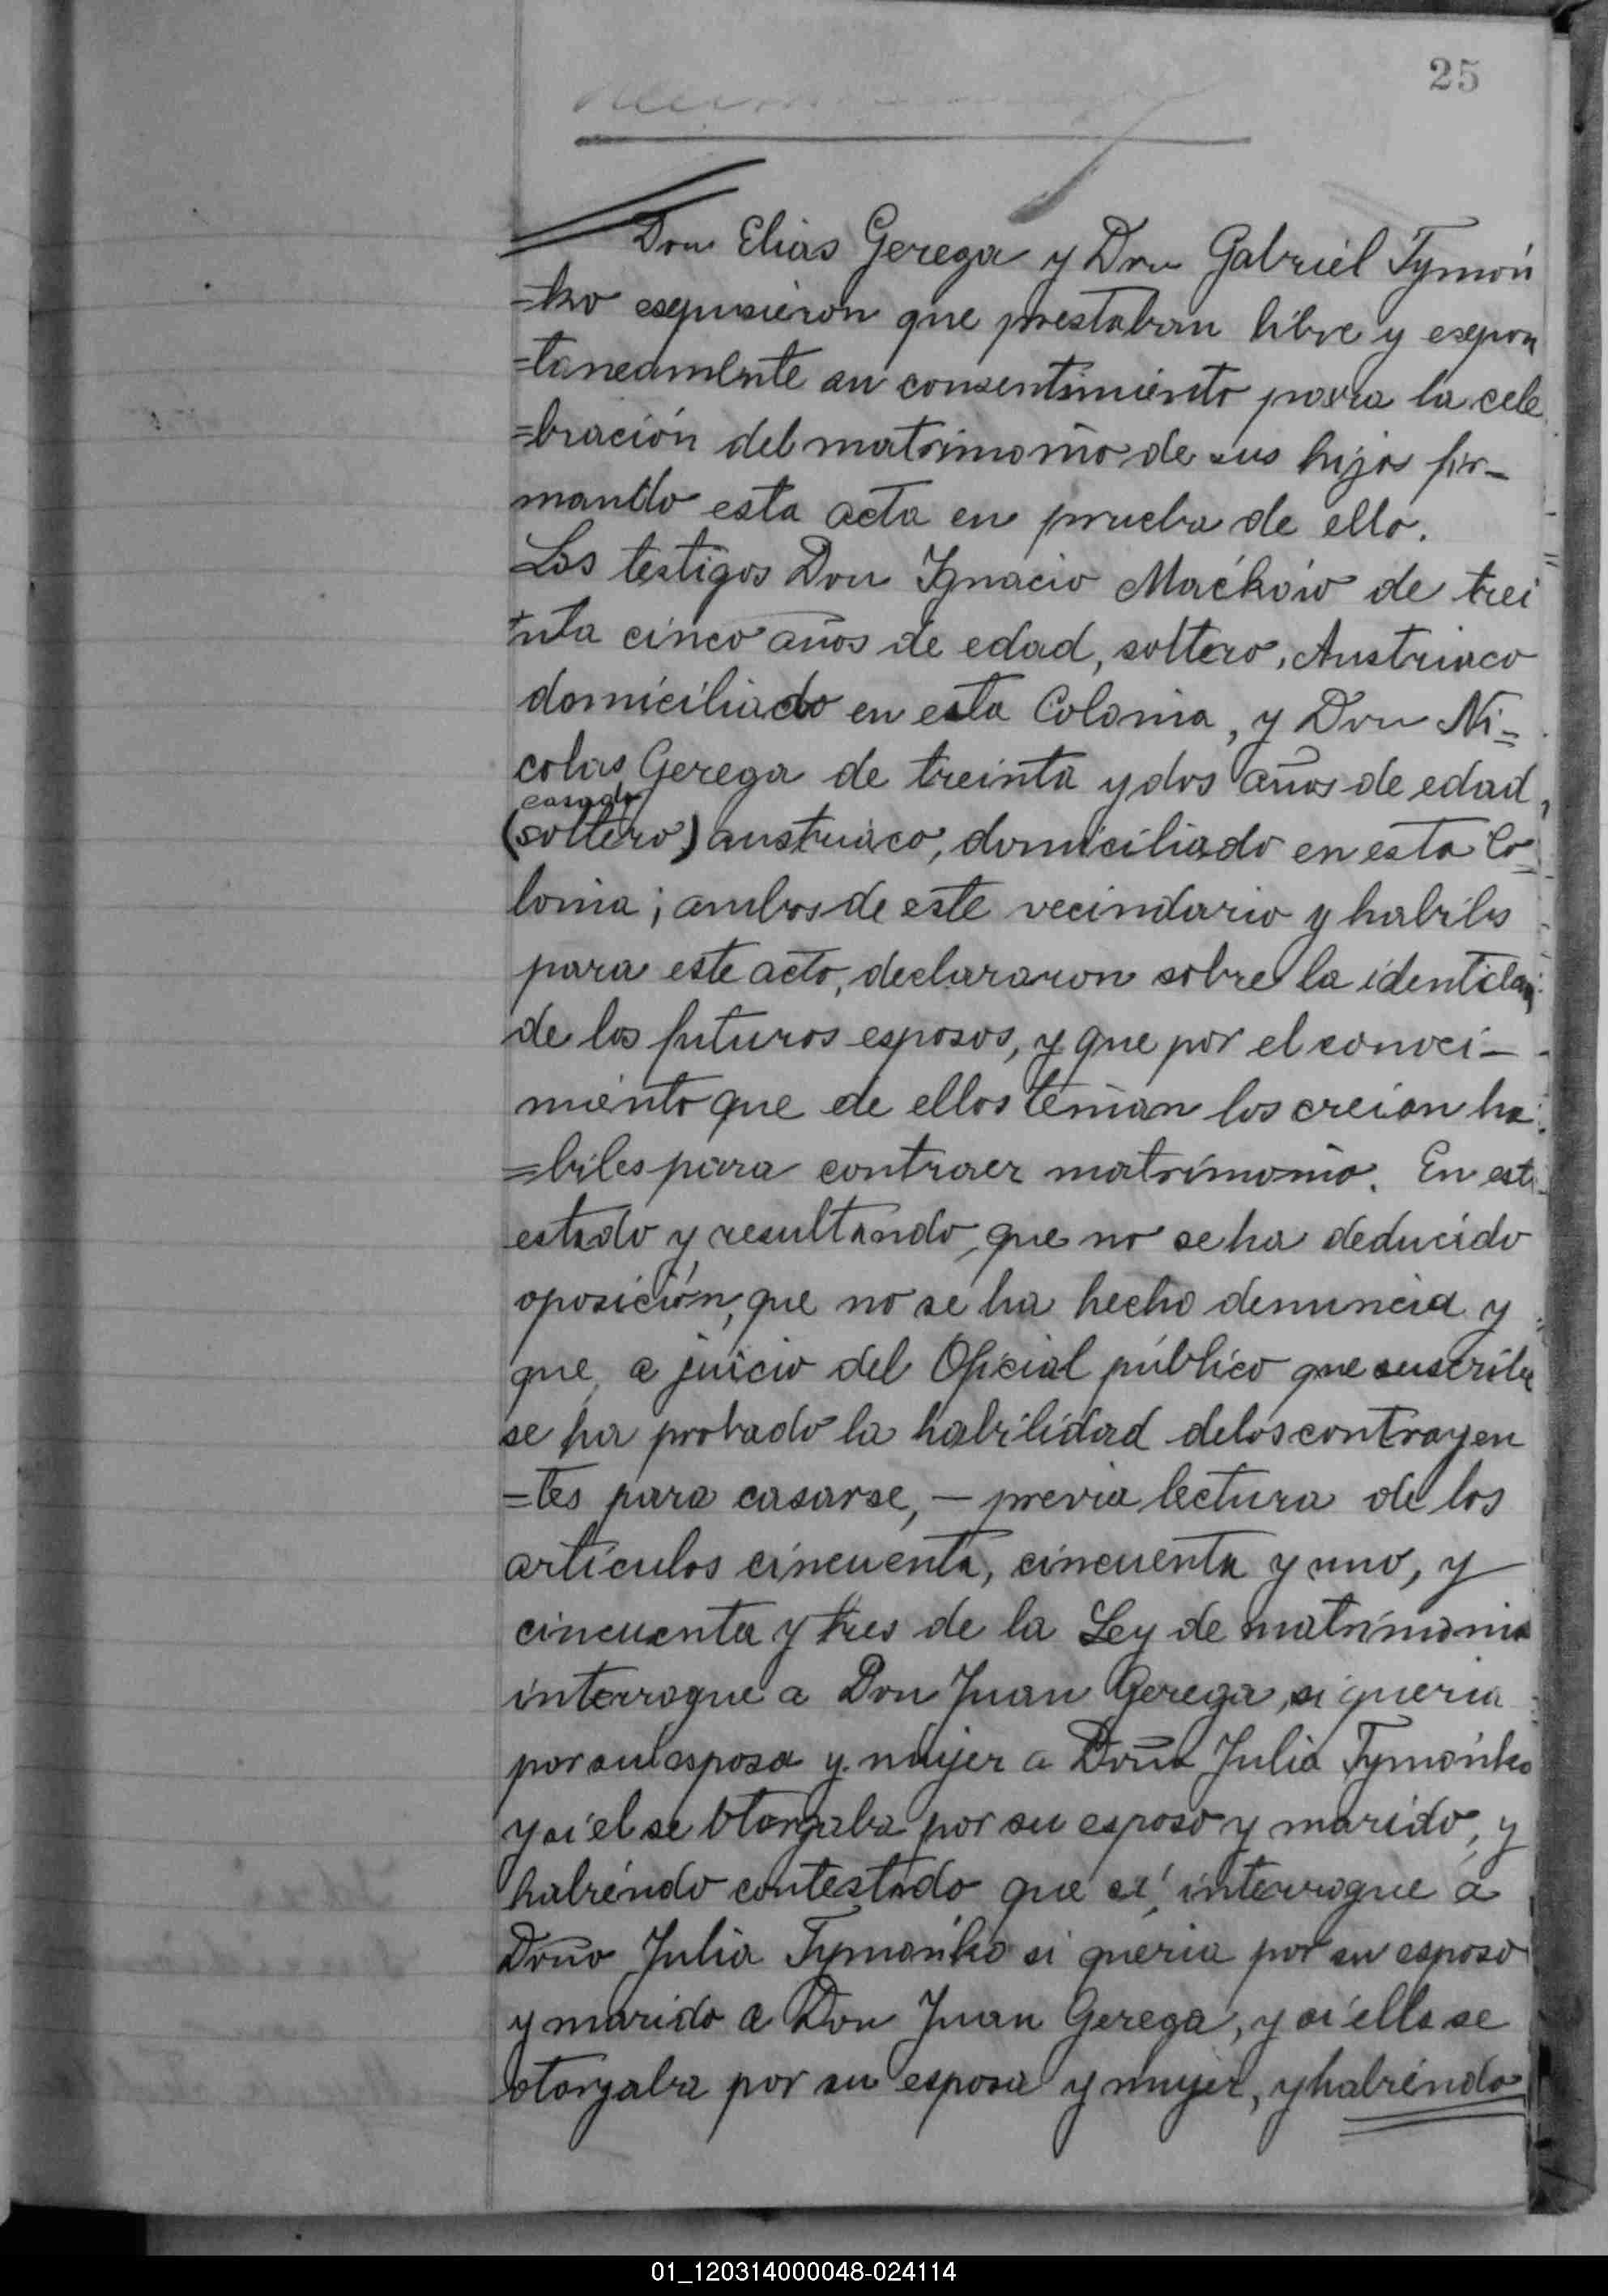 25
Don Elias Gerega y Don Gabriel Tymón
=ko esepusieron que prestaban libre y esepon
=taneamente su consentimiento para la cele
=bración del matrimonio de sus hijos fir-
mando esta acta en prueba de ello.
Los testigos Don Ygnacio Maćków de trei
nta cinco años de edad, soltero, Austriaco
domiciliado en esta Colonia, y Don Ni=
colas Gerega de treinta y dos años de edad,
casado
(soltero) austriaco, domiciliado en esta Co=
lonia; ambos de este vecindario y habiles
para este acto, declararon sobre la identidad
de los futuros esposos, y que por el conoci-
miento que de ellos tenian los creian ha
=biles para contraer matrimonio. En este
estado y resultando, que no se ha deducido
oposición, que no se ha hecho denuncia y
que, a juicio del Oficial público que suscribe
se ha probado la habilidad de los contrayen
=tes para casarse, - previa lectura de los
artículos cincuenta, cincuenta y uno, y
cincuenta y tres de la Ley de matrimonio
interrogue a Don Juan Gerega, si queria
por su esposa y mujer a Doña Julia Tymońko
y si el se otorgaba por su esposo y marido, y
habiendo contestado que sí, interrogue a
Doña Julia Tymońko si queria por su esposo
y marido a Don Juan Gerega, y si ella se
otorgaba por su esposa y mujer, y habiendo
01_120314000048-024114